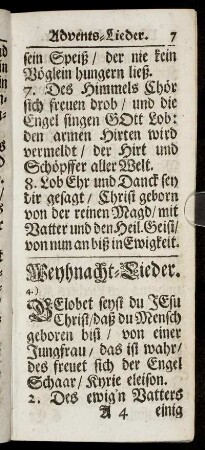 Advents-Lieder. 7
sein Speiß / der nie kein
Vöglein hungern ließ.
7. Des Himmels Chör
sich freuen drob / und die
Engel singen GOtt Lob:
den armen Hirten wird
vermeldt / der Hirt und
Schöpffer aller Welt.
8. Lob Ehr und Danck sey
dir gesagt / Christ geborn
von der reinen Magd / mit
Vatter und den Heil. Geist /
von nun an biß in Ewigkeit.
Weyhnacht-Lieder.
4.)
GElobet seyst du JEsu
Christ / daß du Mensch
geboren bist / von einer
Jungfrau / das ist wahr /
des freuet sich der Engel
Schaar / Kyrie eleison.
2. Des ewig'n Vatters
A 4 einig